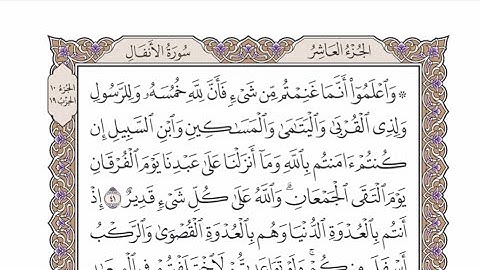 الجُزْءُ العَاشِرُ
سُورَةُ الأَنفَالِ
الجُزْءُ ١٠
الحِزْبُ ١٩
۞ وَٱعۡلَمُوٓاْ أَنَّمَا غَنِمۡتُم مِّن شَيۡءٖ فَأَنَّ لِلَّهِ خُمُسَهُۥ وَلِلرَّسُولِ
وَلِذِي ٱلۡقُرۡبَىٰ وَٱلۡيَتَٰمَىٰ وَٱلۡمَسَٰكِينِ وَٱبۡنِ ٱلسَّبِيلِ إِن
كُنتُمۡ ءَامَنتُم بِٱللَّهِ وَمَآ أَنزَلۡنَا عَلَىٰ عَبۡدِنَا يَوۡمَ ٱلۡفُرۡقَانِ
يَوۡمَ ٱلۡتَقَى ٱلۡجَمۡعَانِۗ وَٱللَّهُ عَلَىٰ كُلِّ شَيۡءٖ قَدِيرٌ ٤١ إِذۡ
أَنتُم بِٱلۡعُدۡوَةِ ٱلدُّنۡيَا وَهُم بِٱلۡعُدۡوَةِ ٱلۡقُصۡوَىٰ وَٱلرَّكۡبُ
أَسۡفَلَ مِنكُمۡۚ وَلَوۡ تَوَاعَدتُّمۡ لَٱخۡتَلَفۡتُمۡ فِي ٱلۡمِيعَٰدِ